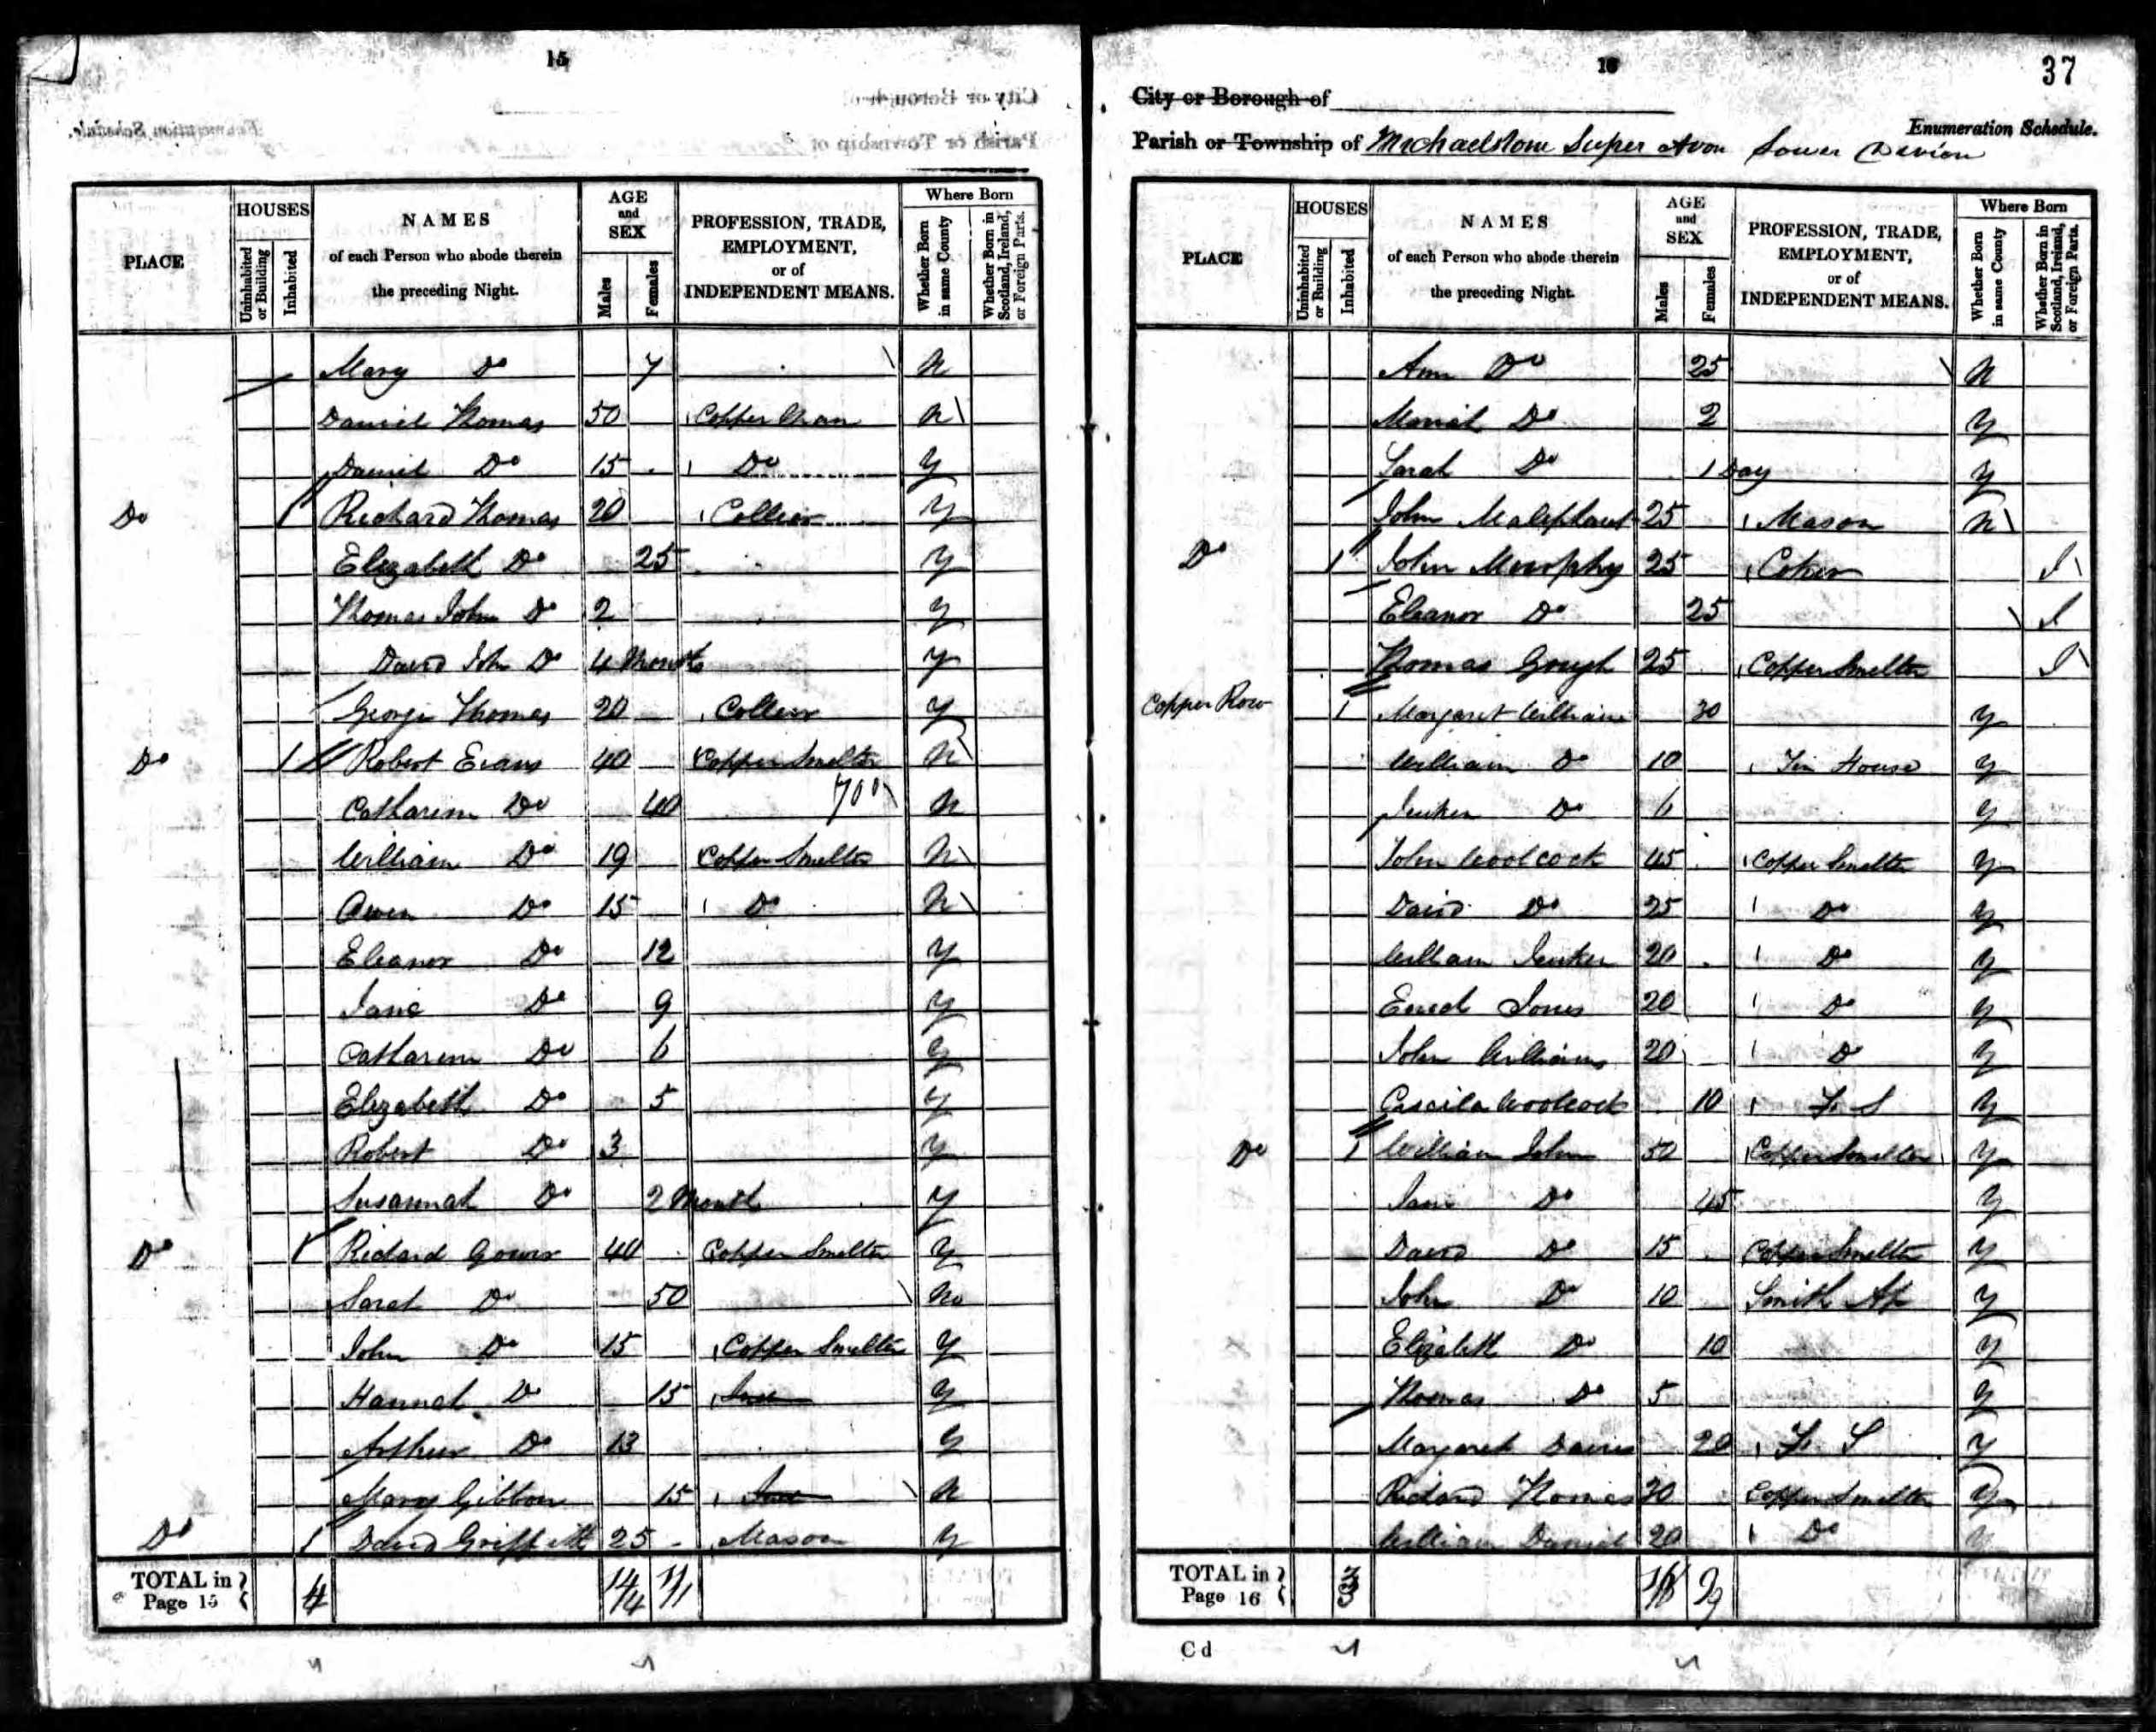 15
PLACE
HOUSES
Uninhabited or Building
Inhabited
NAMES
of each Person who abode therein
the preceding Night.
AGE
and
SEX
Males
Females
PROFESSION, TRADE,
EMPLOYMENT,
or of
INDEPENDENT MEANS.
Where Born
Whether Born in same County
Whether Born in Scotland, Ireland, or Foreign Parts.
Mary Do 7 N
Daniel Thomas 50 Copper Man N
Daniel Do 15 Do Y
Do 1 Richard Thomas 20 Collier Y
Elizabeth Do 25 Y
Thomas John Do 2 Y
David John Do 4 Months Y
George Thomas 20 Collier Y
Do 1 Robert Evans 40 Copper Smelter N
Catharine Do 40 700 N
William Do 19 Copper Smelter N
Owen Do 15 Do N
Eleanor Do 12 Y
Jane Do 9 Y
Catharine Do 6 Y
Elizabeth Do 5 Y
Robert Do 3 Y
Susannah Do 2 Month Y
Do 1 Richard Gower 40 Copper Smelter Y
Sarah Do 50 No
John Do 15 Copper Smelter Y
Hannah Do 15 Y
Arthur Do 13 Y
Mary Gibbon 15 N
Do 1 David Griffith 25 Mason Y
TOTAL in
Page 15
4 14 11
37
16
City or Borough of
Enumeration Schedule.
Parish or Township of Michaelstone Super Avon Lower
PLACE
HOUSES
Uninhabited or Building
Inhabited
NAMES
of each Person who abode therein
the preceding Night.
AGE
and
SEX
Males
Females
PROFESSION, TRADE,
EMPLOYMENT,
or of
INDEPENDENT MEANS.
Where Born
Whether Born in same County
Whether Born in Scotland, Ireland, or Foreign Parts.
Ann Do 25 N
Do 2 Y
Sarah Do 1 Day Y
John Malephant 25 Mason N
Do 1 John Murphy 25 Coker I
Eleanor Do 25 I
Thomas Gough 25 Copper Smelter I
Copper Row 1 Margaret William 30 Y
William Do 10 Tin House Y
Jenkin Do 6 Y
John Woolcock 45 Copper Smelter Y
David Do 25 Do Y
William Jenkin 20 Do Y
Jones 20 Do Y
John Williams 20 Do Y
Woolcock 10 F. S Y
Do 1 William John 50 Copper Smelter Y
Jane Do 45 Y
David Do 15 Copper Smelter Y
John Do 10 Smith Ap Y
Elizabeth Do 10 Y
Thomas Do 5 Y
Margaret Davies 20 F. S Y
Richard Thomas 20 Copper Smelter Y
William Daniel 20 Do Y
TOTAL in
Page 16
3 16 9
Cd